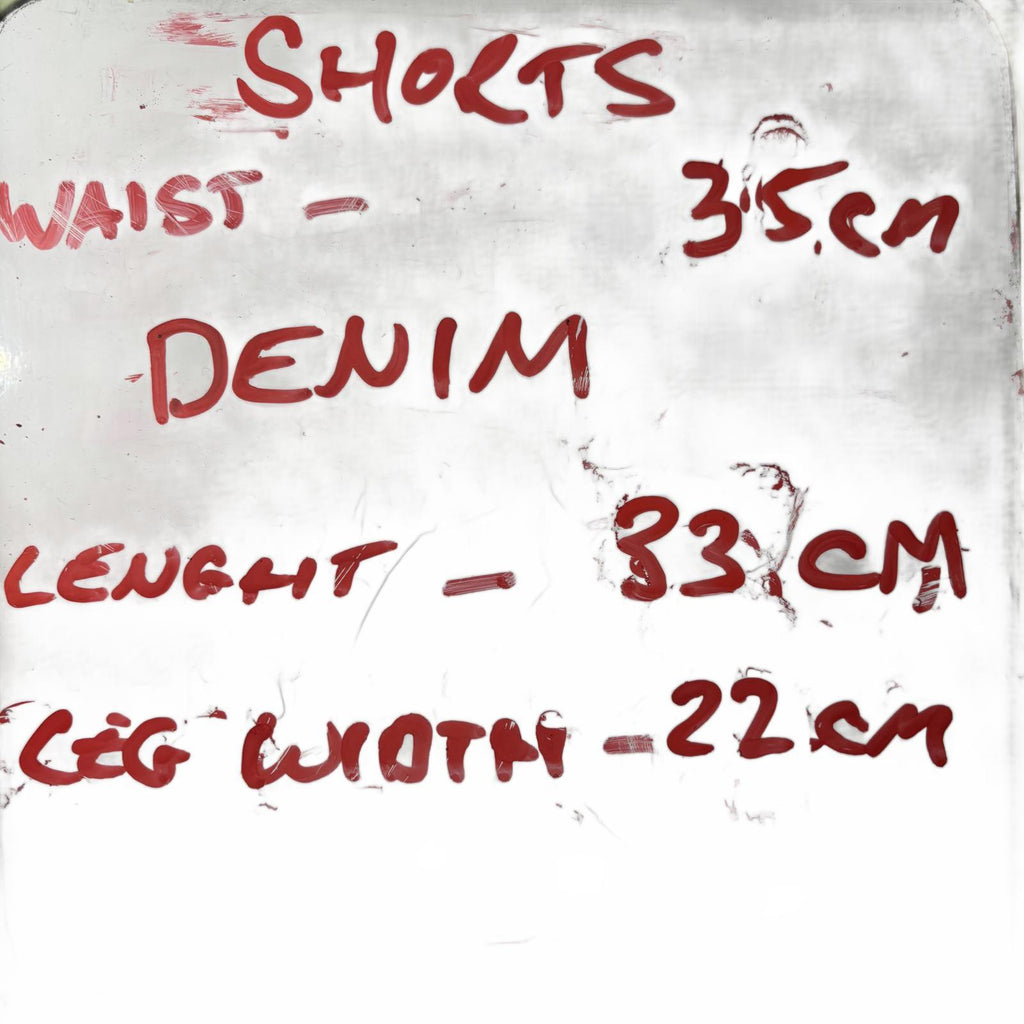 SHORTS
WAIST - 35.cm
DENIM
LENGHT - 33 CM
LEG WIDTH - 22 cm